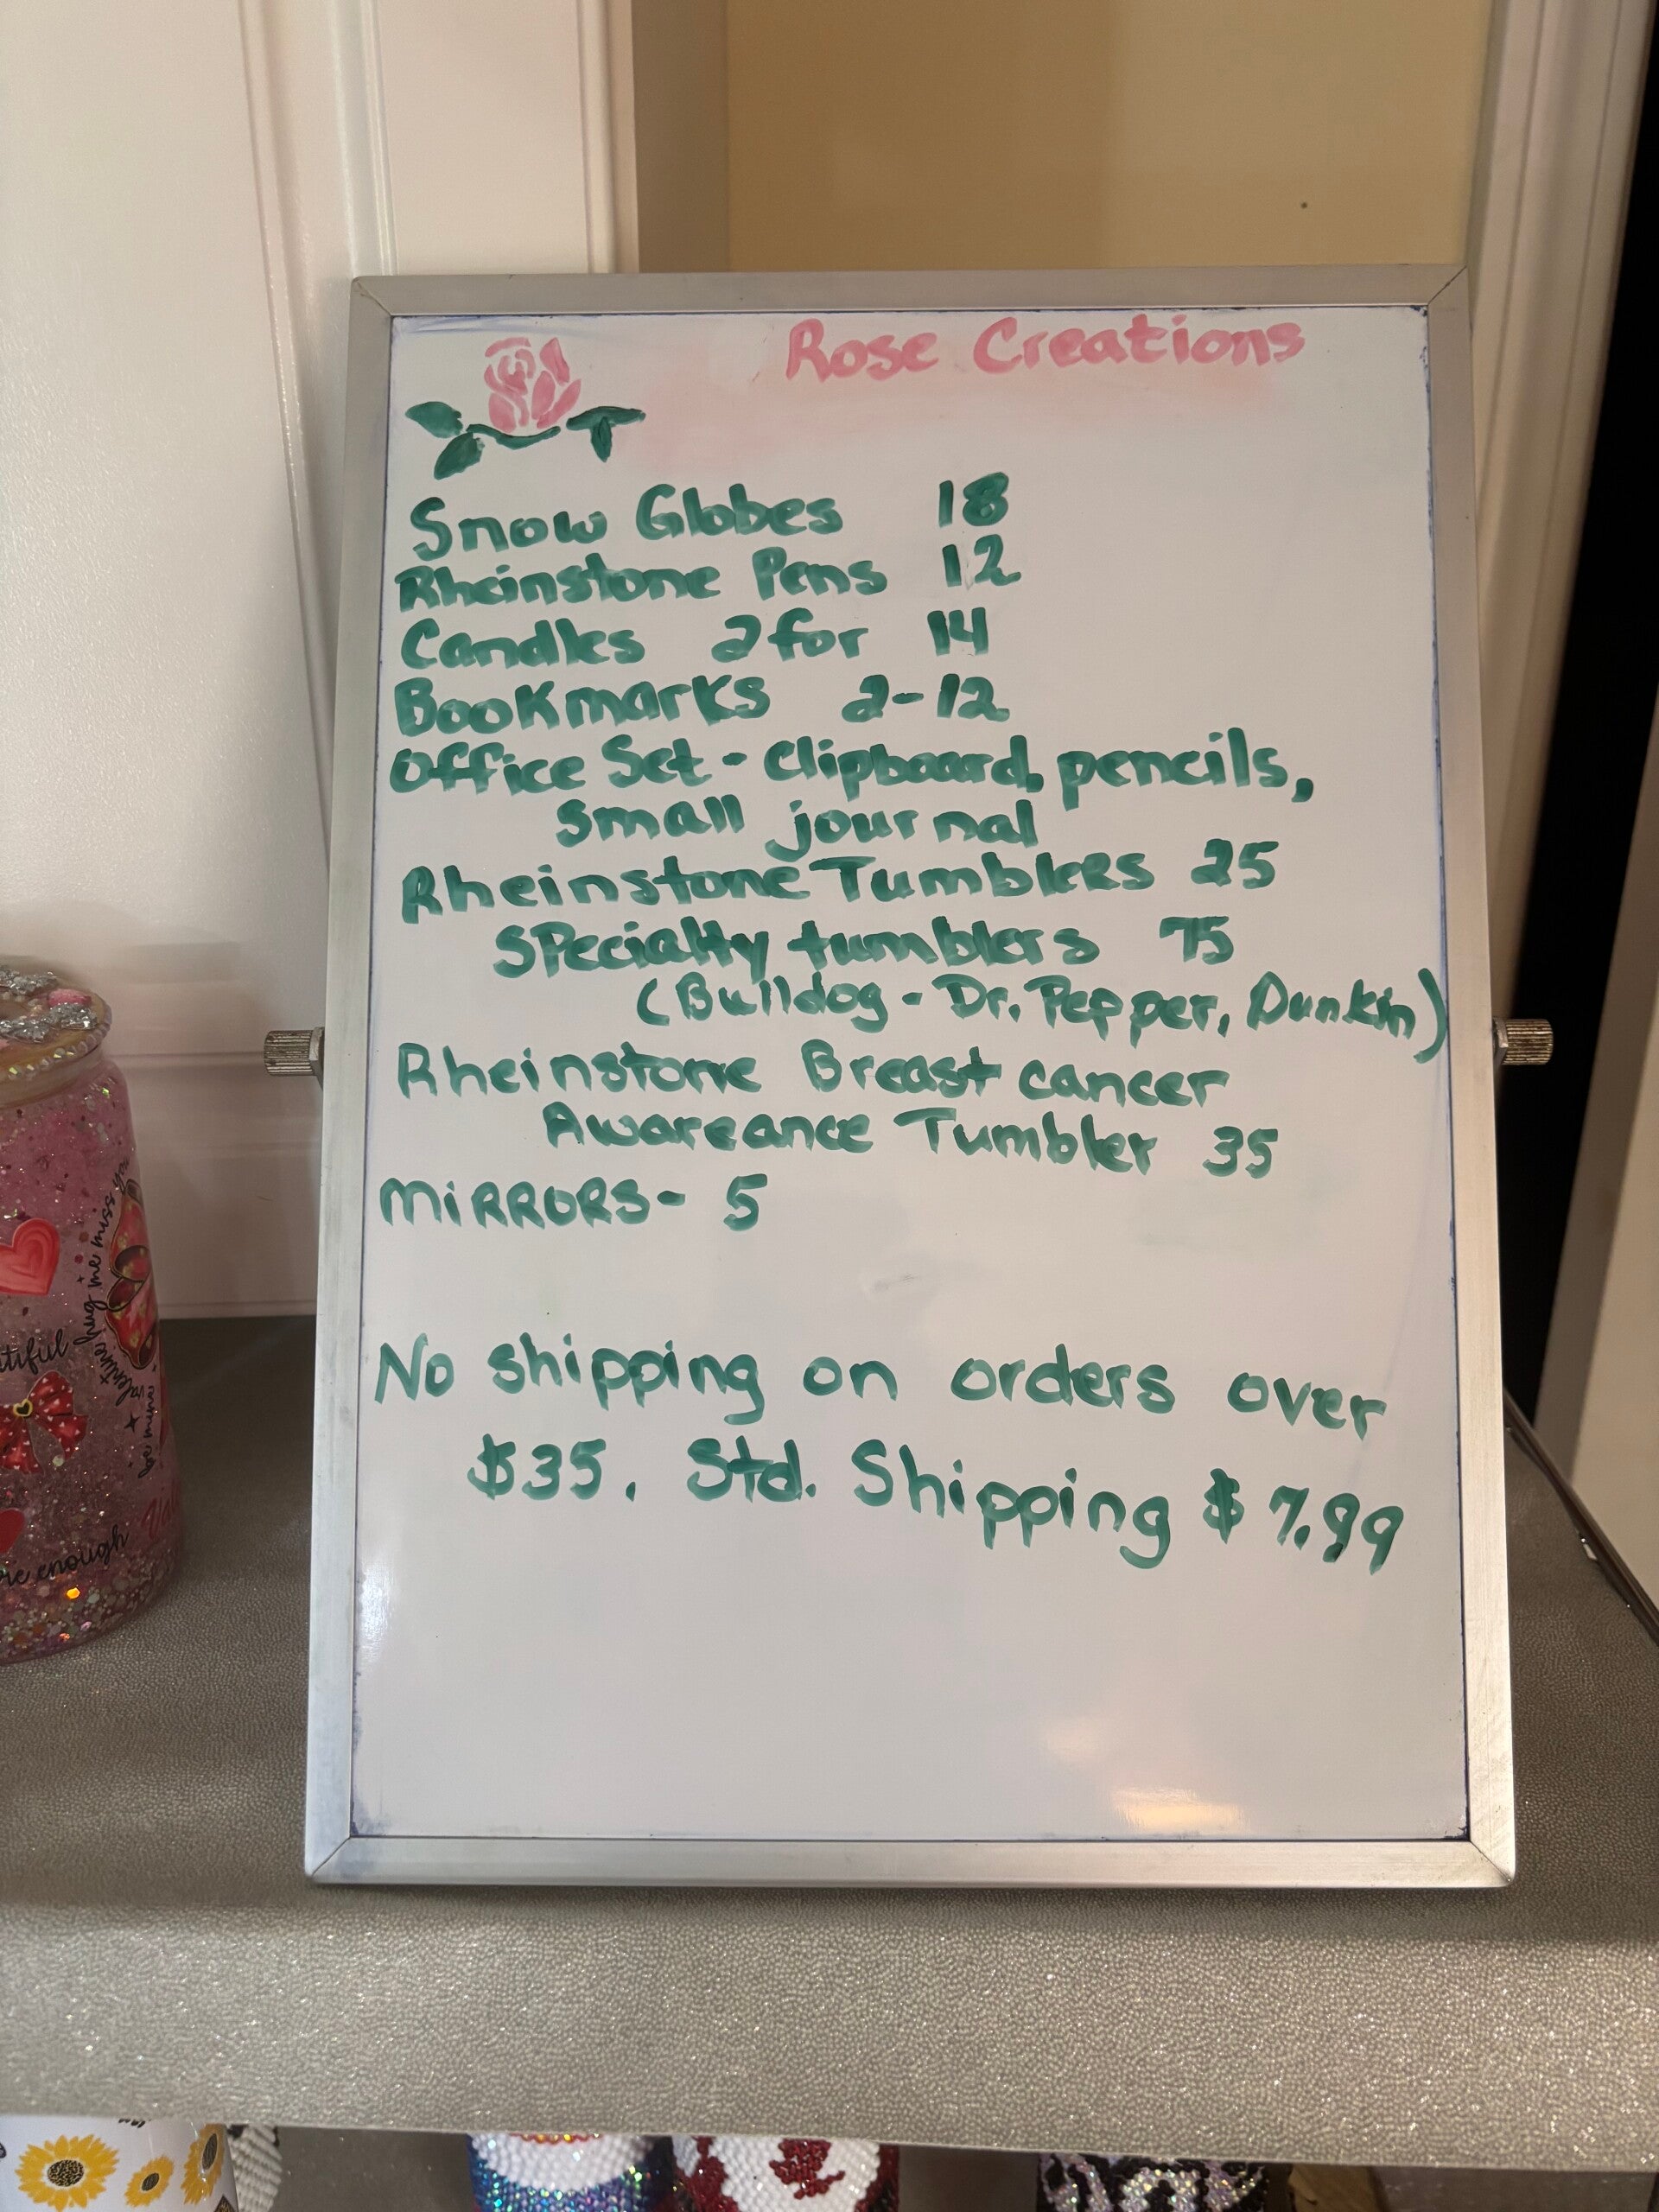 Rose Creations
Snow Globes 18
Rheinstone Pens 12
Candles 2 for 14
Bookmarks 2-12
Office Set - Clipboard, pencils,
small journal
Rheinstone Tumblers 25
Specialty tumblers 75
(Bulldog - Dr. Pepper, Dunkin)
Rheinstone Breast cancer
Awareance Tumbler 35
MiRRORS- 5
No shipping on orders over
$35. Std. Shipping $7.99
hug me miss you
valentine
be mine
tiful
re enough